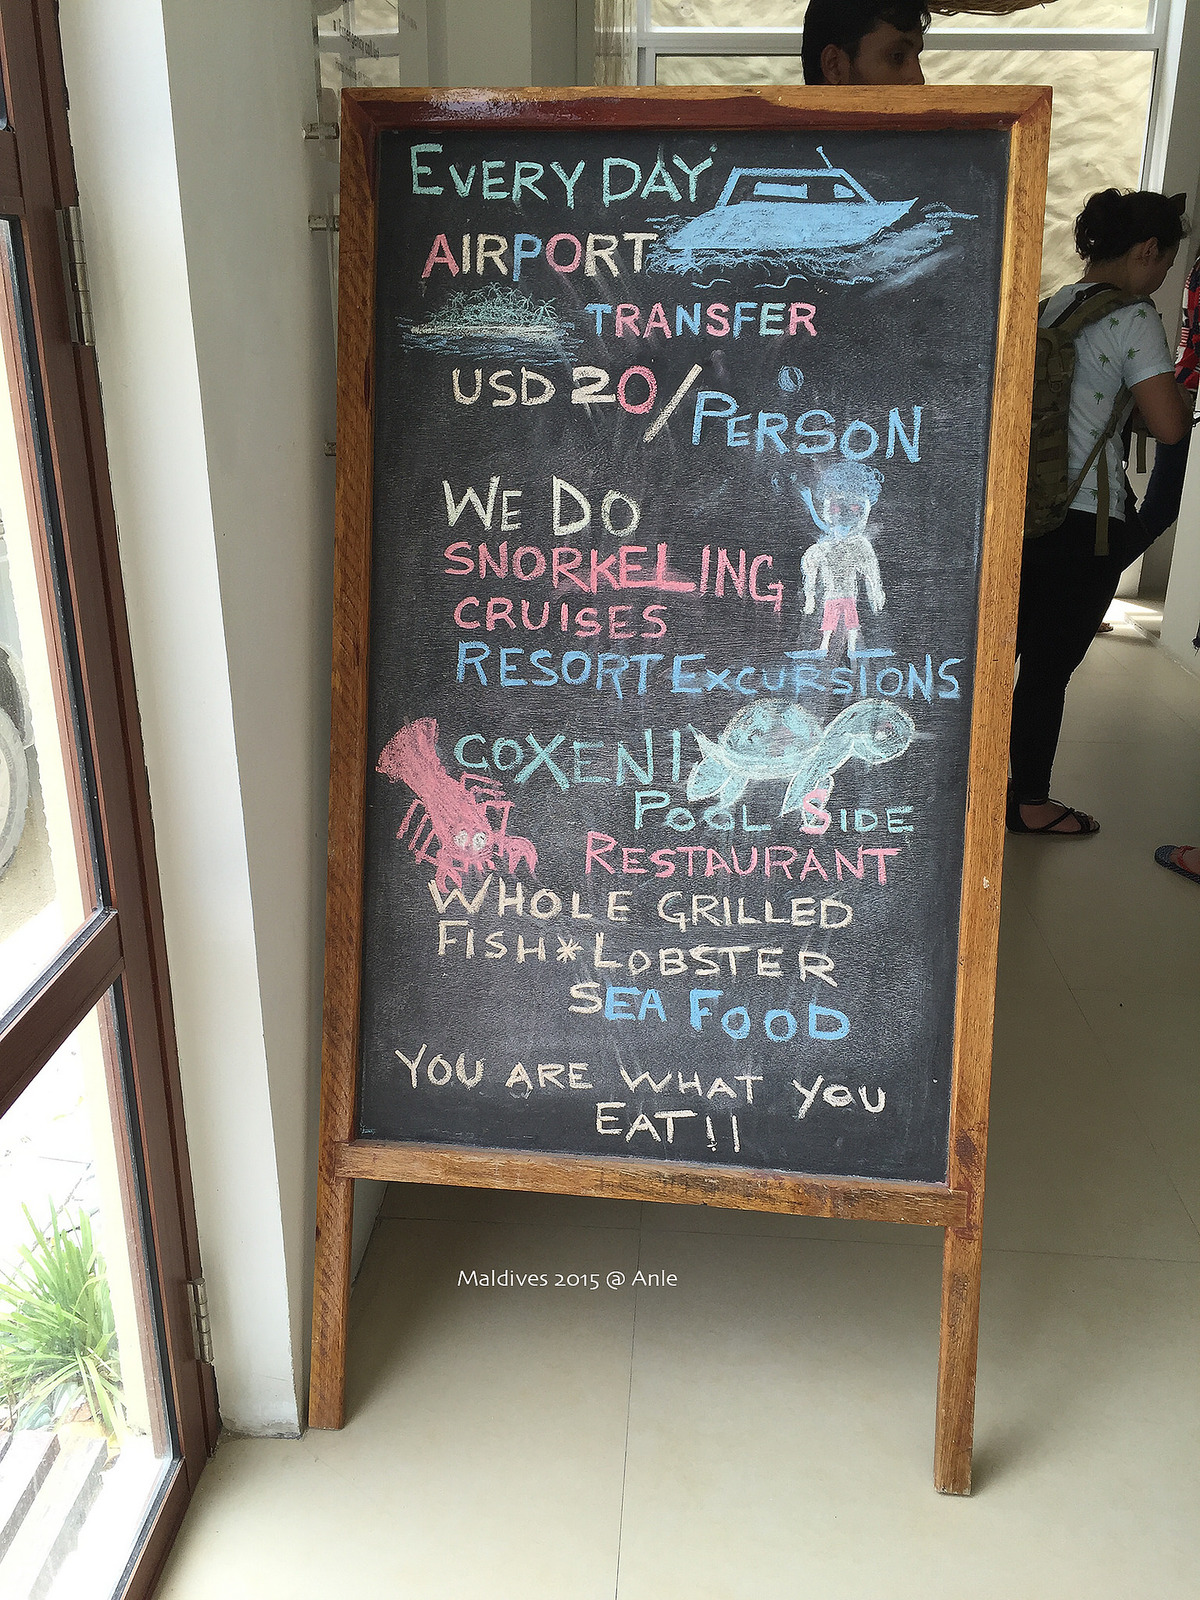 EVERY DAY
AIRPORT
TRANSFER
USD 20/PERSON
WE DO
SNORKELING
CRUISES
RESORT EXCURSIONS
COXENI
POOL SIDE
RESTAURANT
WHOLE GRILLED
FISH*LOBSTER
SEA FOOD
YOU ARE WHAT YOU
EAT!!
Maldives 2015 @ Anle